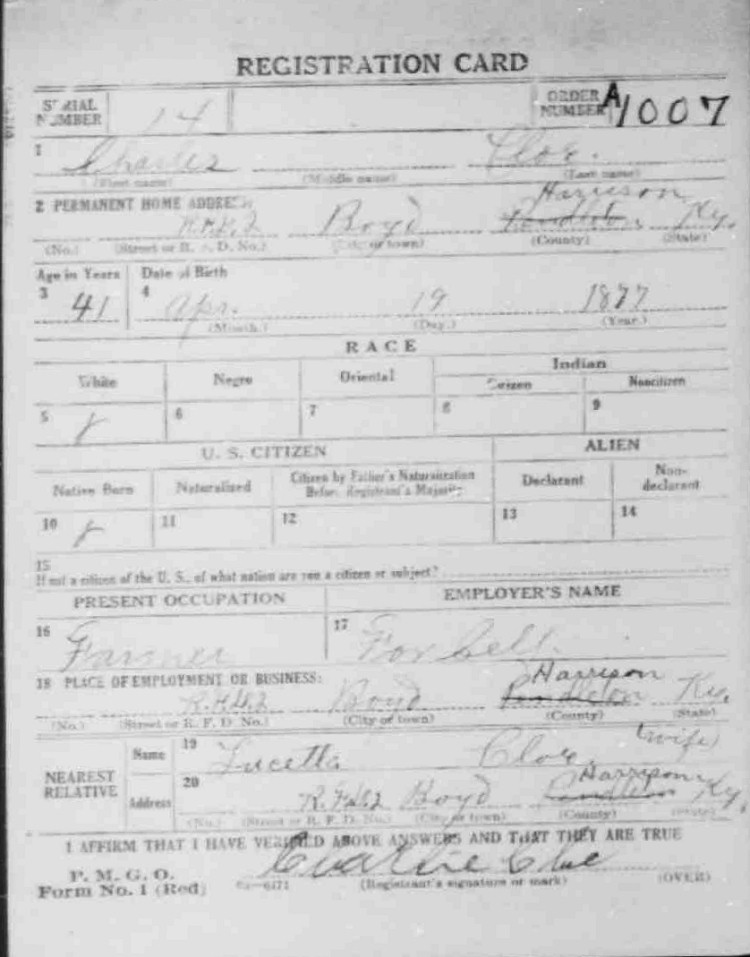 REGISTRATION CARD
SERIAL NUMBER 14 ORDER NUMBER A1007
1 Charles Cloe.
(First name) (Middle name) (Last name)
2 PERMANENT HOME ADDRESS:
Harrison
Boyd Pendleton Ky.
(No.) (Street or R. F. D. No.) (City or town) (County) (State)
Age in Years Date of Birth
3 41 4 Apr. 19 1877
(Month.) (Day.) (Year.)
RACE
White Negro Oriental Indian
Citizen Noncitizen
5 6 7 8 9
U. S. CITIZEN ALIEN
Native Born Naturalized Citizen by Father's Naturalization Before Registrant's Majority Declarant Non-declarant
10 11 12 13 14
15
If not a citizen of the U. S., of what nation are you a citizen or subject?
PRESENT OCCUPATION EMPLOYER'S NAME
16 Farmer 17
18 PLACE OF EMPLOYMENT OR BUSINESS:
Harrison
Boyd Pendleton Ky.
(No.) (Street or R. F. D. No.) (City or town) (County) (State)
NEAREST RELATIVE
Name 19 Lucetta Cloe. (wife)
Harrison
Address 20 Boyd Pendleton Ky.
(No.) (Street or R. F. D. No.) (City or town) (County) (State)
I AFFIRM THAT I HAVE VERIFIED ABOVE ANSWERS AND THAT THEY ARE TRUE
P. M. G. O.
Form No. 1 (Red) (Registrant's signature or mark) (OVER)